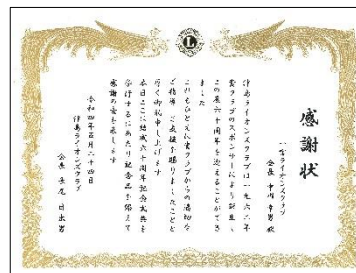 L
感謝状
一宮ライオンズクラブ
会長 中村 幸男 殿
津島ライオンズクラブは一九六二年
貴クラブのスポンサーにより誕生し
この度六十周年を迎えることができ
ました
これもひとえに貴クラブからの適切な
ご指導 ご支援を賜りましたことと
厚く御礼申し上げます
本日ここに結成六十周年記念式典を
挙行するにあたり記念品を添えて
感謝の意を表します
令和四年五月二十四日
津島ライオンズクラブ
会長 日出男